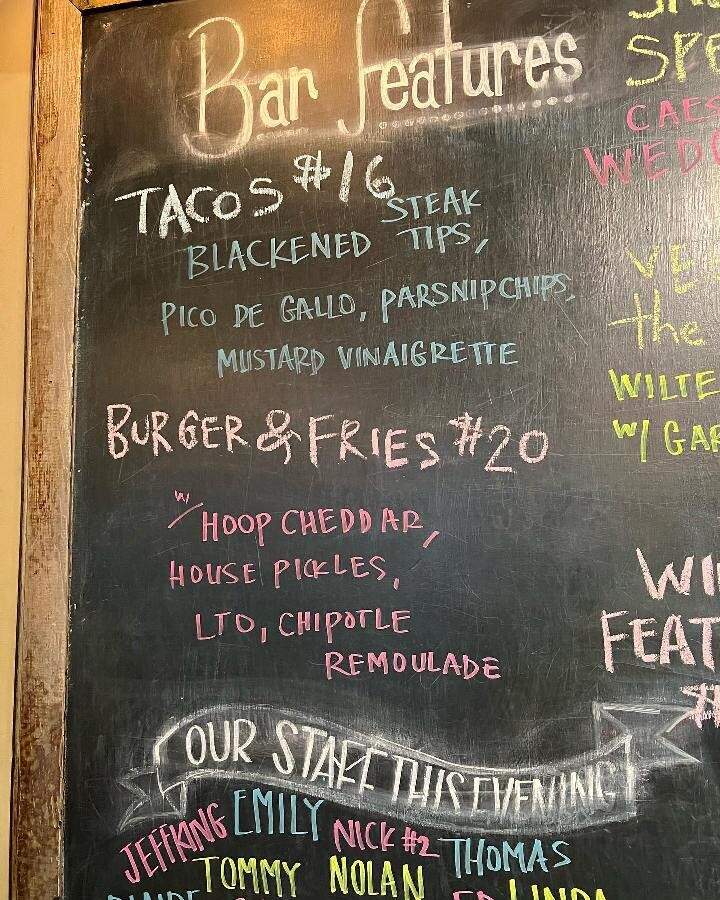 Bar Features
TACOS $16
BLACKENED STEAK TIPS,
PICO DE GALLO, PARSNIP CHIPS,
MUSTARD VINAIGRETTE
BURGER & FRIES $20
w/ HOOP CHEDDAR,
HOUSE PICKLES,
LTO, CHIPOTLE
REMOULADE
OUR STAFF THIS EVENING
JEFFKING EMILY NICK #2 THOMAS
TOMMY NOLAN
LINDA
SPE
CAES
WED
VE
the
WILTE
W/ GAR
WI
FEAT